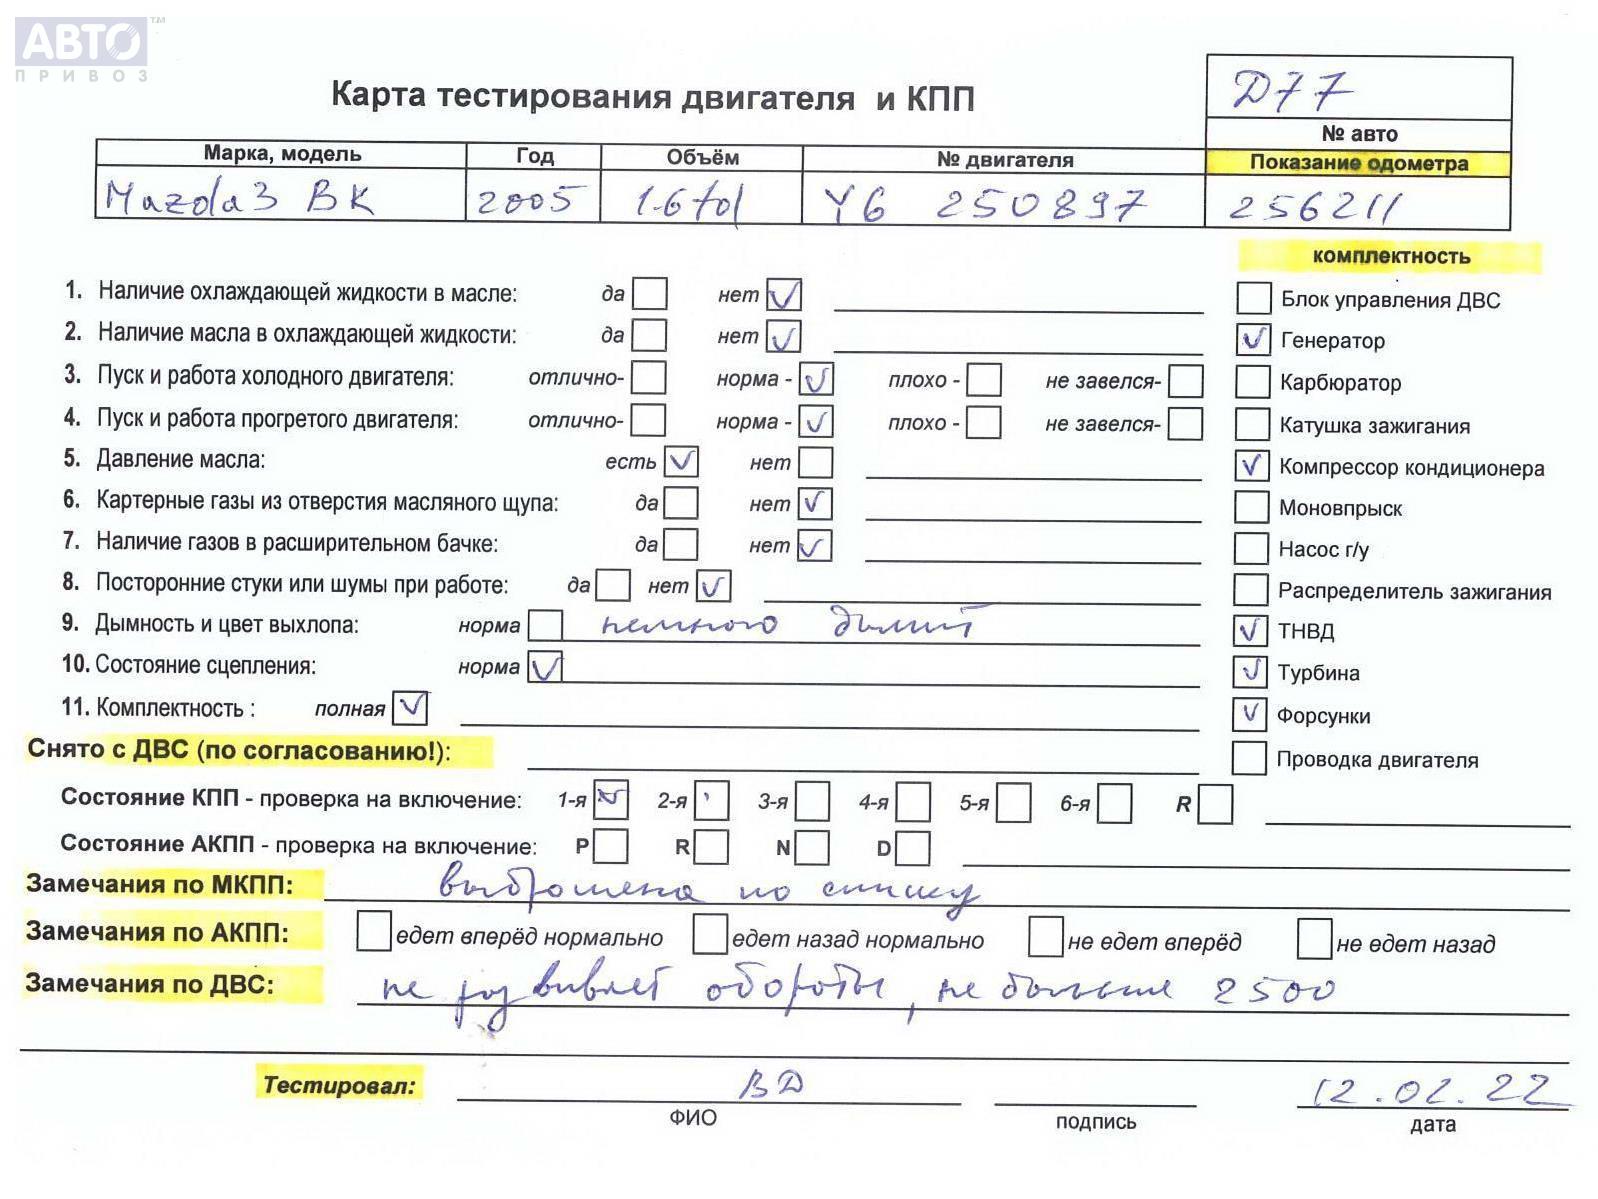 АВТО™
ПРИВОЗ
Карта тестирования двигателя и КПП
Д77
№ авто
Марка, модель Год Объём № двигателя Показание одометра
Mazda3 BK 2005 1.6td Y6 250897 256211
комплектность
1. Наличие охлаждающей жидкости в масле: да нет ✓
Блок управления ДВС
2. Наличие масла в охлаждающей жидкости: да нет ✓
✓ Генератор
3. Пуск и работа холодного двигателя: отлично- норма - ✓ плохо - не завелся-
Карбюратор
4. Пуск и работа прогретого двигателя: отлично- норма - ✓ плохо - не завелся-
Катушка зажигания
5. Давление масла: есть ✓ нет
✓ Компрессор кондиционера
6. Картерные газы из отверстия масляного щупа: да нет ✓
Моновпрыск
7. Наличие газов в расширительном бачке: да нет ✓
Насос г/у
8. Посторонние стуки или шумы при работе: да нет ✓
Распределитель зажигания
9. Дымность и цвет выхлопа: норма немного дымит
✓ ТНВД
10. Состояние сцепления: норма ✓
✓ Турбина
11. Комплектность : полная ✓
✓ Форсунки
Снято с ДВС (по согласованию!):
Проводка двигателя
Состояние КПП - проверка на включение: 1-я ✓ 2-я 3-я 4-я 5-я 6-я R
Состояние АКПП - проверка на включение: P R N D
Замечания по МКПП: выброшена по списку
Замечания по АКПП: едет вперёд нормально едет назад нормально не едет вперёд не едет назад
Замечания по ДВС: не развивает обороты, не больше 2500
Тестировал: ВД 12.02.22
ФИО подпись дата